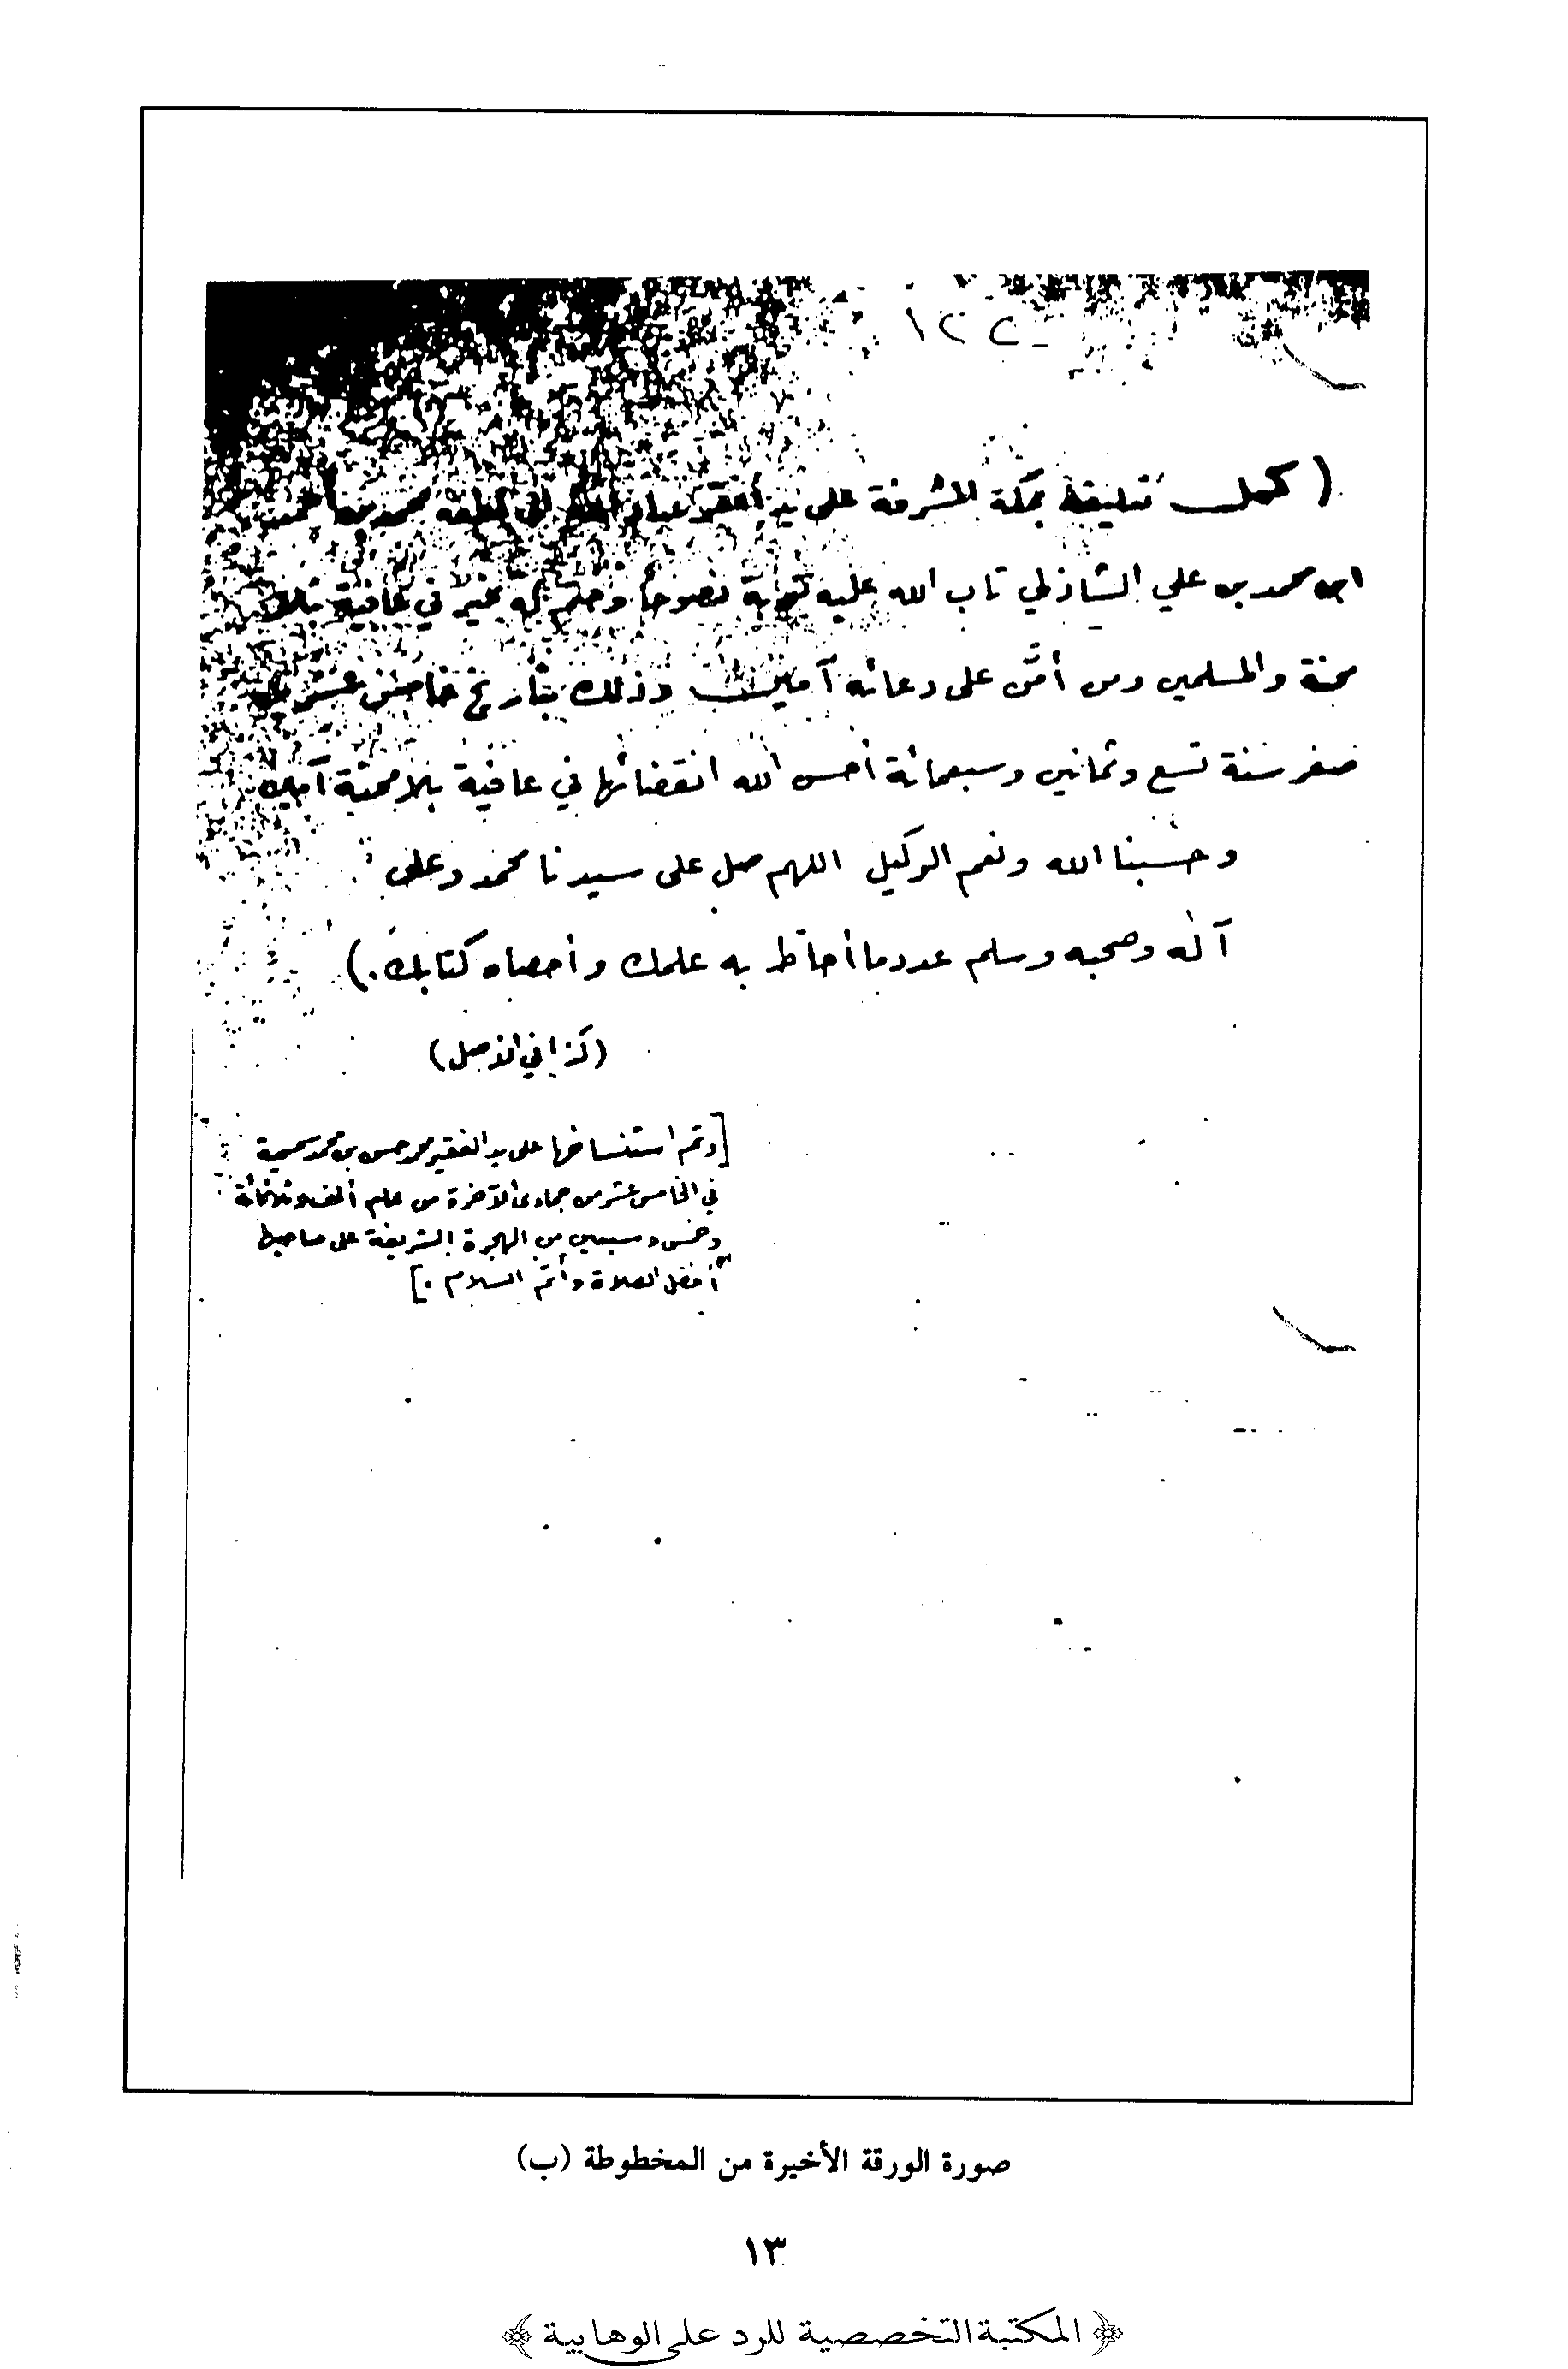 ١٢٢ -
( كمل تعليقه بمكة المشرفة على يد أفقر عباد الله الى لطفه محمد بن أحمد
ابن محمد بن علي الشاذلي تاب الله عليه توبة نصوحاً وختم له بخير في عافية بلا
محنة والمسلمين ومن أمَّن على دعائه آمين وذلك بتاريخ خامس عشر
صفر سنة تسع وثمانين وسبعمائة أحسن الله انقضائها في عافية بلا محنة آمين
وحسبنا الله ونعم الوكيل اللهم صل على سيدنا محمد وعلى
آله وصحبه وسلم عدد ما أحاط به علمك وأحصاه كتابك .)
(كذا في الأصل)
[وتم استنساخها على يد الفقير محمد حسن بن محمد سمسمية
في الخامس عشر من جمادى الآخرة من عام ألف وثلاثمائة
وخمس وسبعين من الهجرة الشريفة على صاحبها
أفضل الصلاة وأتم السلام .]
صورة الورقة الأخيرة من المخطوطة (ب)
١٣
﴿ المكتبة التخصصية للرد على الوهابية ﴾